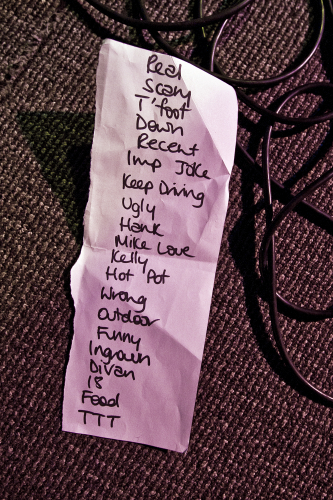 Real
Scary
T'foot
Down
Recent
Imp Joke
Keep Diving
Ugly
Hank
Mike Love
Kelly
Hot Pot
Wrong
Outdoor
Funny
Ingrown
Divan
18
Food
TTT